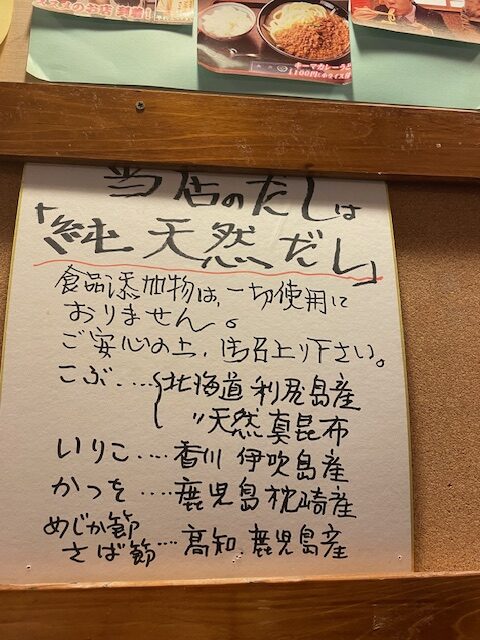 キーマカレーう
1100円に小ライス付
当店のだしは
「純天然だし」
食品添加物は、一切使用に
おりません。
ご安心の上、御召上り下さい。
こぶ・・・・北海道 利尻島産
〃天然真昆布
いりこ・・・・香川 伊吹島産
かつを・・・・鹿児島枕崎産
めじか節
さば節・・・・高知、鹿児島産